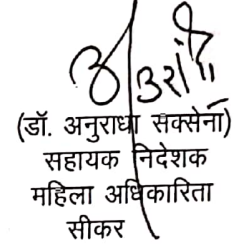 (डॉ. अनुराधा सक्सेना)
सहायक निदेशक
महिला अधिकारिता
सीकर